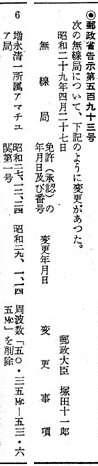 ◉郵政省告示第五百九十三号
次の無線局について、下記のように変更があつた。
昭和二十九年四月二十七日
郵政大臣 塚田十一郎
無線局
免許(承認)の年月日及び番号
変更年月日
変更事項
6
増永清一所属アマチュア局
昭和二七、一二、四
関第一号
昭和二九、一、一四
周波数「五〇・三五㎫―五三・六五㎫」を削除